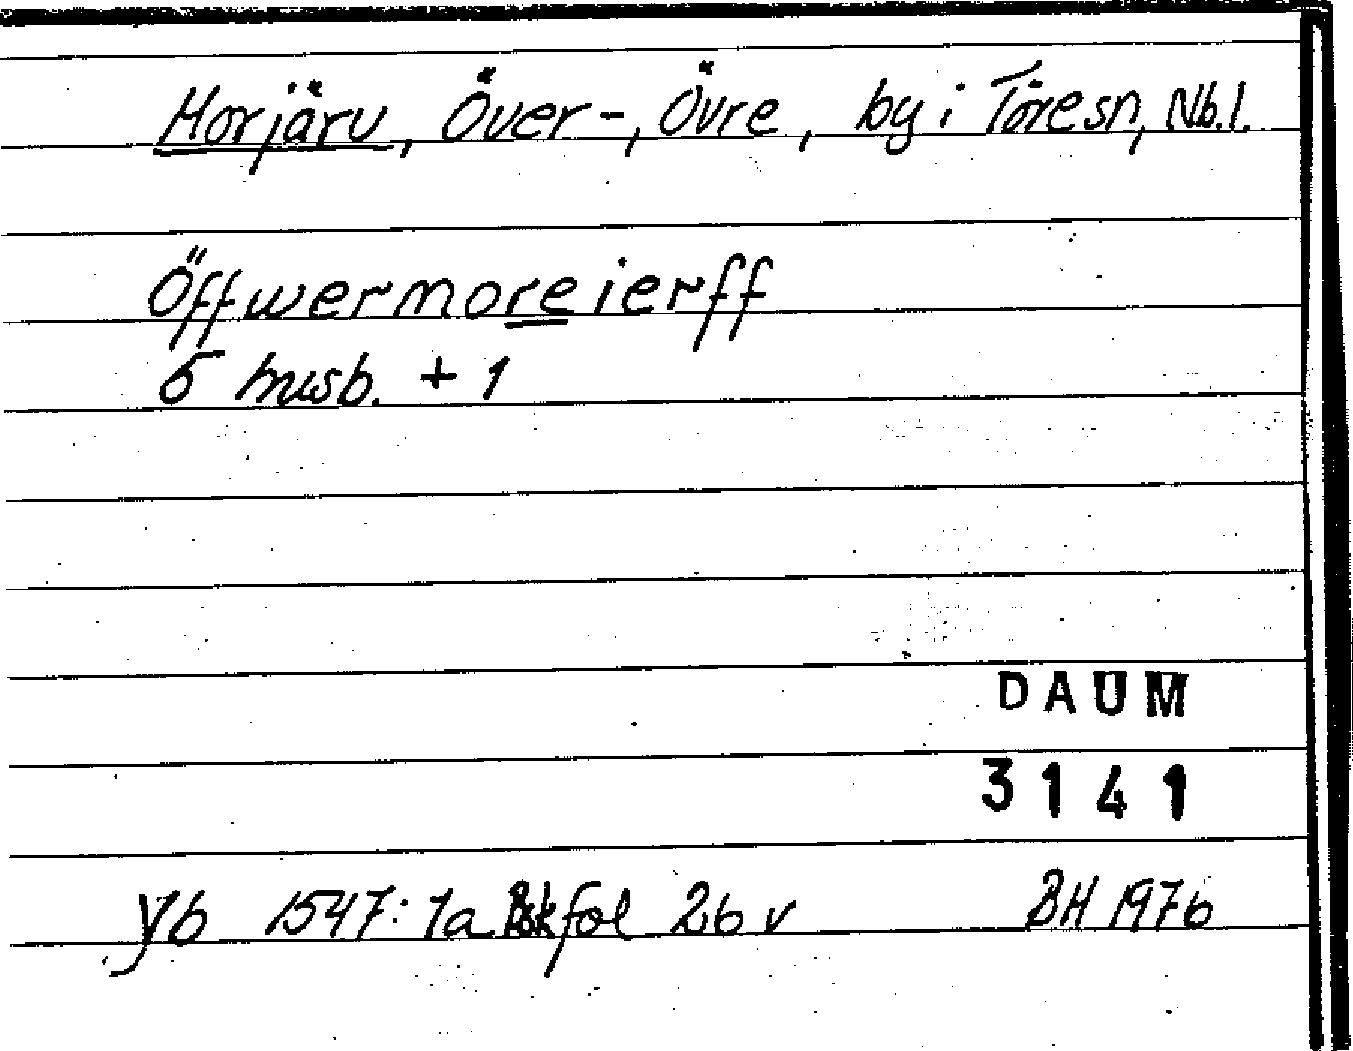 Morjärv, Över-, Övre, by i Töresn, Nb.l.
Öffwermoreierff
5 husb. + 1
DAUM
3141
yb 1547:1a Bsk fol 26 v BH 1976